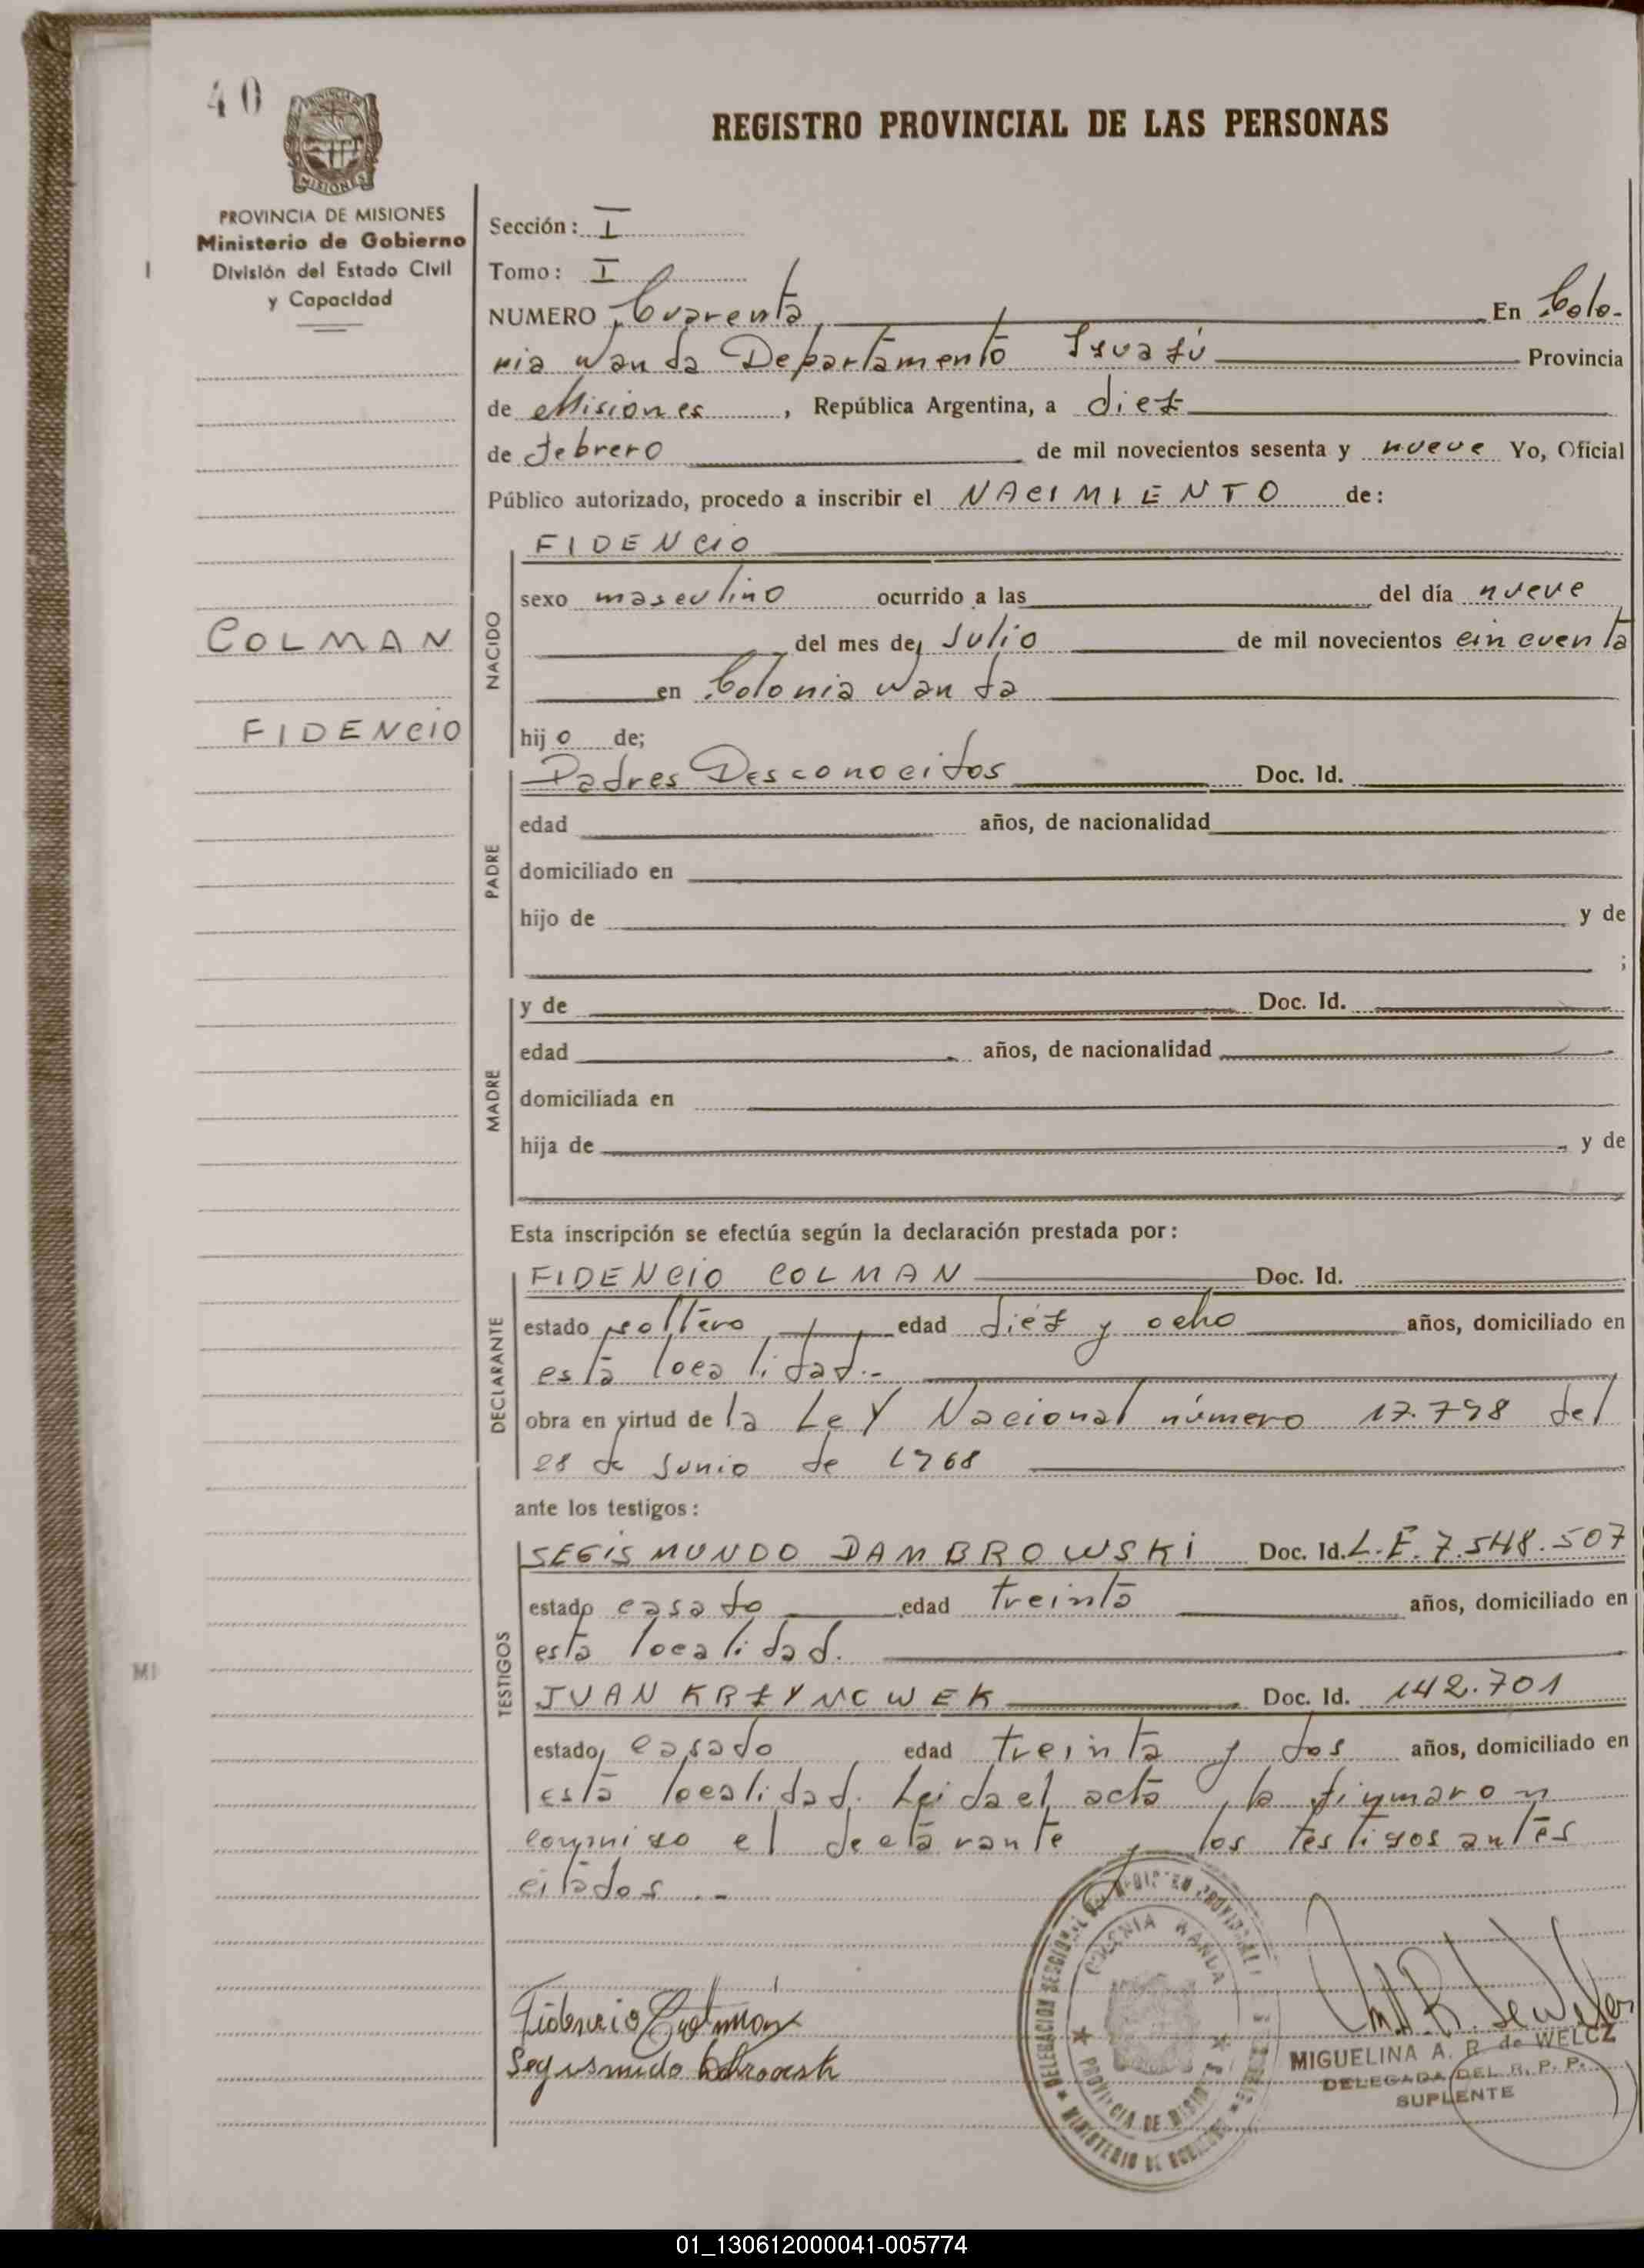 40
REGISTRO PROVINCIAL DE LAS PERSONAS
MISIONES
PROVINCIA DE MISIONES
Ministerio de Gobierno
División del Estado Civil
y Capacidad
Sección: I
Tomo: I
NUMERO Cuarenta En Colo-
nia Wanda Departamento Iguazú Provincia
de Misiones, República Argentina, a diez
de febrero de mil novecientos sesenta y nueve Yo, Oficial
Público autorizado, procedo a inscribir el NACIMIENTO de:
NACIDO
FIDENCIO
sexo masculino ocurrido a las del día nueve
COLMAN
del mes de Julio de mil novecientos cincuenta
en Colonia Wanda
FIDENCIO
hijo de;
PADRE
Padres Desconocidos Doc. Id.
edad años, de nacionalidad
domiciliado en
hijo de y de
;
MADRE
y de Doc. Id.
edad años, de nacionalidad
domiciliada en
hija de y de
Esta inscripción se efectúa según la declaración prestada por:
DECLARANTE
FIDENCIO COLMAN Doc. Id.
estado soltero edad diéz y ocho años, domiciliado en
esta localidad.-
obra en virtud de la Ley Nacional número 17.798 del
28 de Junio de 1968
ante los testigos:
TESTIGOS
SEGISMUNDO DAMBROWSKI Doc. Id. L.E. 7.548.507
estado casado edad treinta años, domiciliado en
esta localidad.
JUAN KRZYNCWEK Doc. Id. 142.701
estado casado edad treinta y dos años, domiciliado en
esta localidad. Leida el acta, la firmaron
conmigo el declarante y los testigos antes
citados.-
COLONIA WANDA
PROVINCIA DE MISIONES
MINISTERIO DE GOBIERNO
Fidencio Colman
MIGUELINA A. R. de WELCZ
DELEGADA DEL R. P. P.
SUPLENTE
01_130612000041-005774